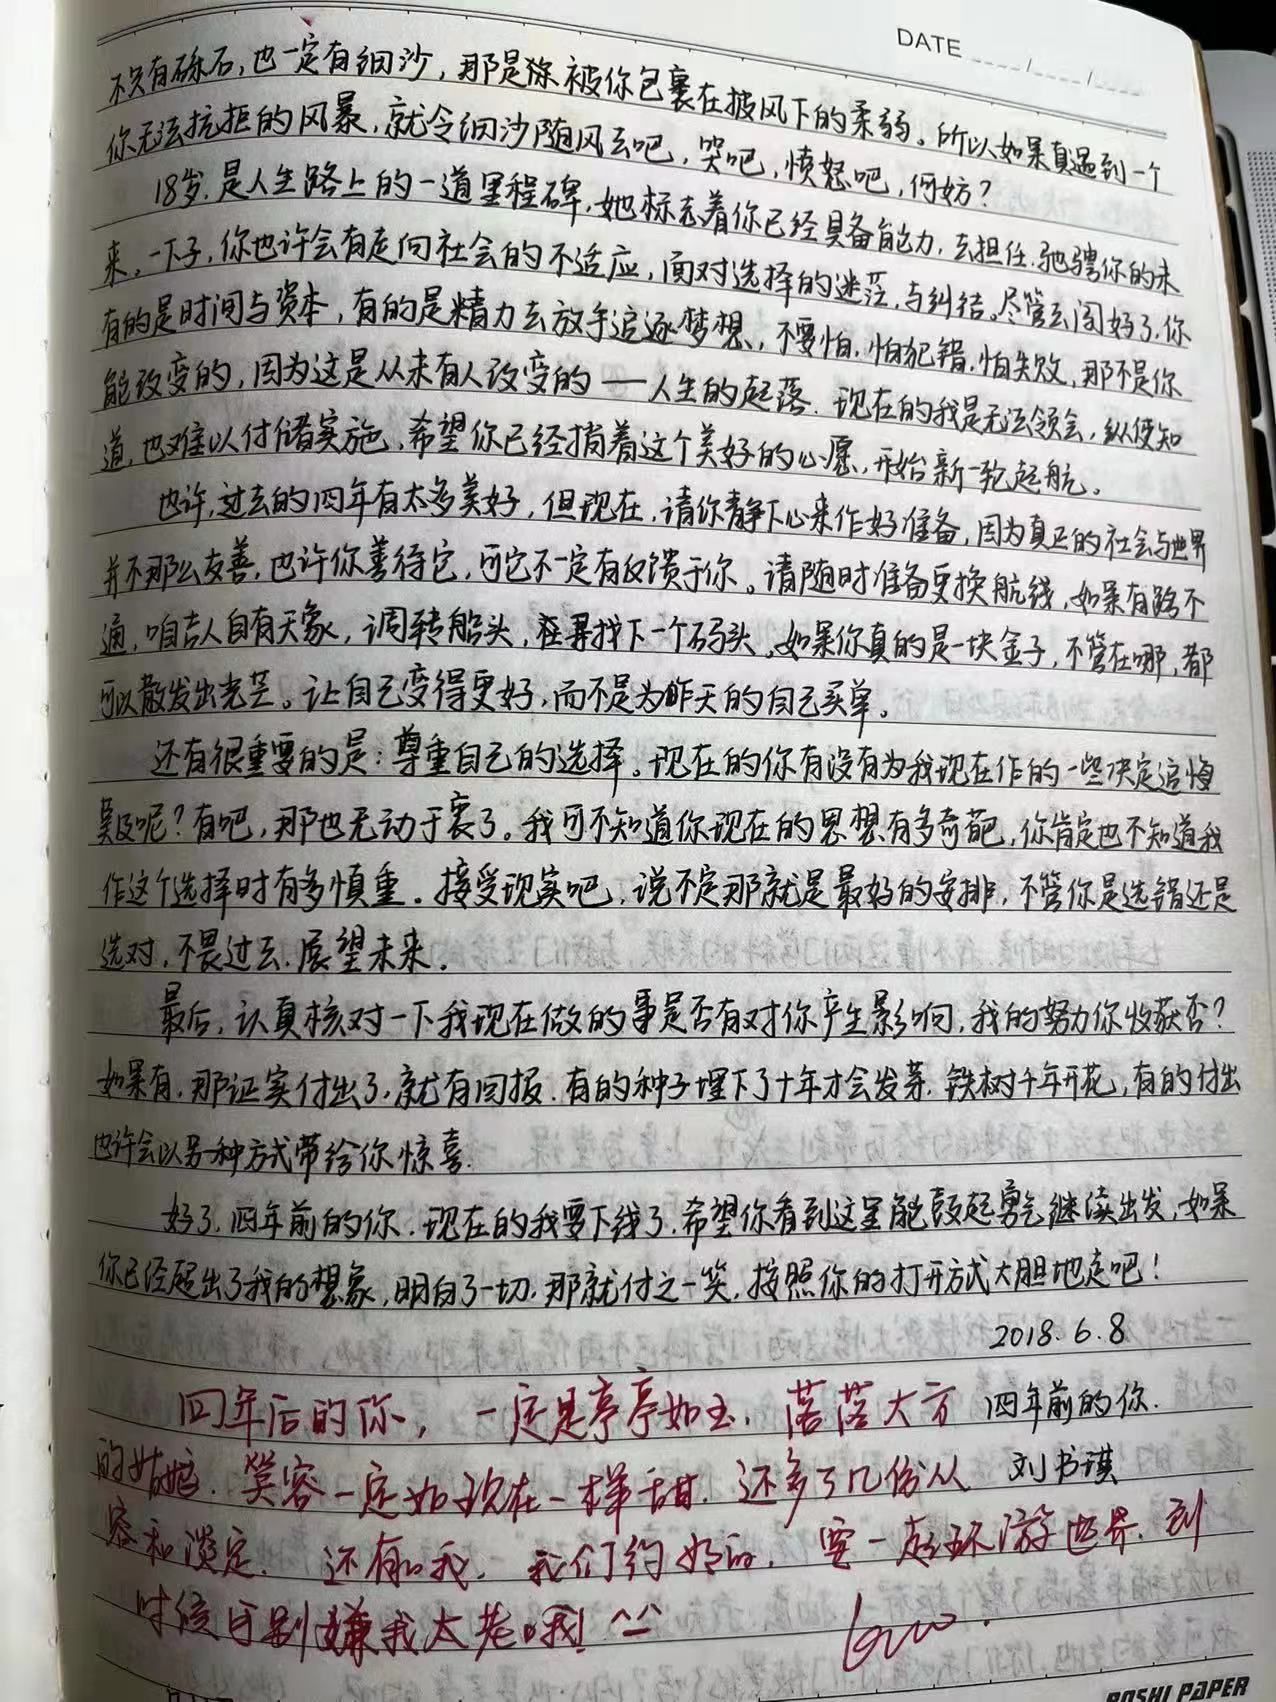 DATE ____/____/____
不只有砾石，也一定有细沙，那是你被你包裹在披风下的柔弱。所以如果真遇到一个
你无法抗拒的风暴，就令细沙随风去吧，哭吧，愤怒吧，何妨？
18岁，是人生路上的一道里程碑，她标志着你已经具备能力，去担任、驰骋你的未
来。一下子，你也许会有走向社会的不适应，面对选择的迷茫，与纠结。尽管去闯好了，你
有的是时间与资本，有的是精力去放手追逐梦想，不要怕，怕犯错，怕失败，那不是你
能改变的，因为这是从未有人改变的——人生的起落。现在的我是无法领会，纵使知
道，也难以付诸实施，希望你已经揹着这个美好的心愿，开始新一轮起航。
也许，过去的四年有太多美好，但现在，请你静下心来作好准备，因为真正的社会与世界
并不那么友善，也许你善待它，可它不一定有反馈于你。请随时准备更换航线，如果有路不
通，咱吉人自有天象，调转船头，在寻找下一个码头。如果你真的是一块金子，不管在哪，都
可以散发出光芒。让自己变得更好，而不是为昨天的自己买单。
还有很重要的是：尊重自己的选择。现在的你有没有为我现在作的一些决定追悔
莫及呢？有吧，那也无动于衷了。我可不知道你现在的思想有多奇葩，你肯定也不知道我
作这个选择时有多慎重。接受现实吧，说不定那就是最好的安排，不管你是选错还是
选对，不畏过去，展望未来。
最后，认真核对一下我现在做的事是否有对你产生影响，我的努力你收获否？
如果有，那证实付出了，就有回报。有的种子埋下了十年才会发芽，铁树千年开花，有的付出
也许会以另一种方式带给你惊喜。
好了，四年前的你，现在的我要下线了，希望你看到这里能鼓起勇气继续出发，如果
你已经超出了我的想象，明白了一切，那就付之一笑，按照你的打开方式大胆地走吧！
2018.6.8
四年前的你.
刘书琪
四年后的你，一定是亭亭如玉，落落大方
的姑娘，笑容一定如现在一样甜，还多了几份从
容和淡定，还有的我，我们约好的，要一起环游世界，到
时候可别嫌我太老哦！^-^
BOSHI PAPER